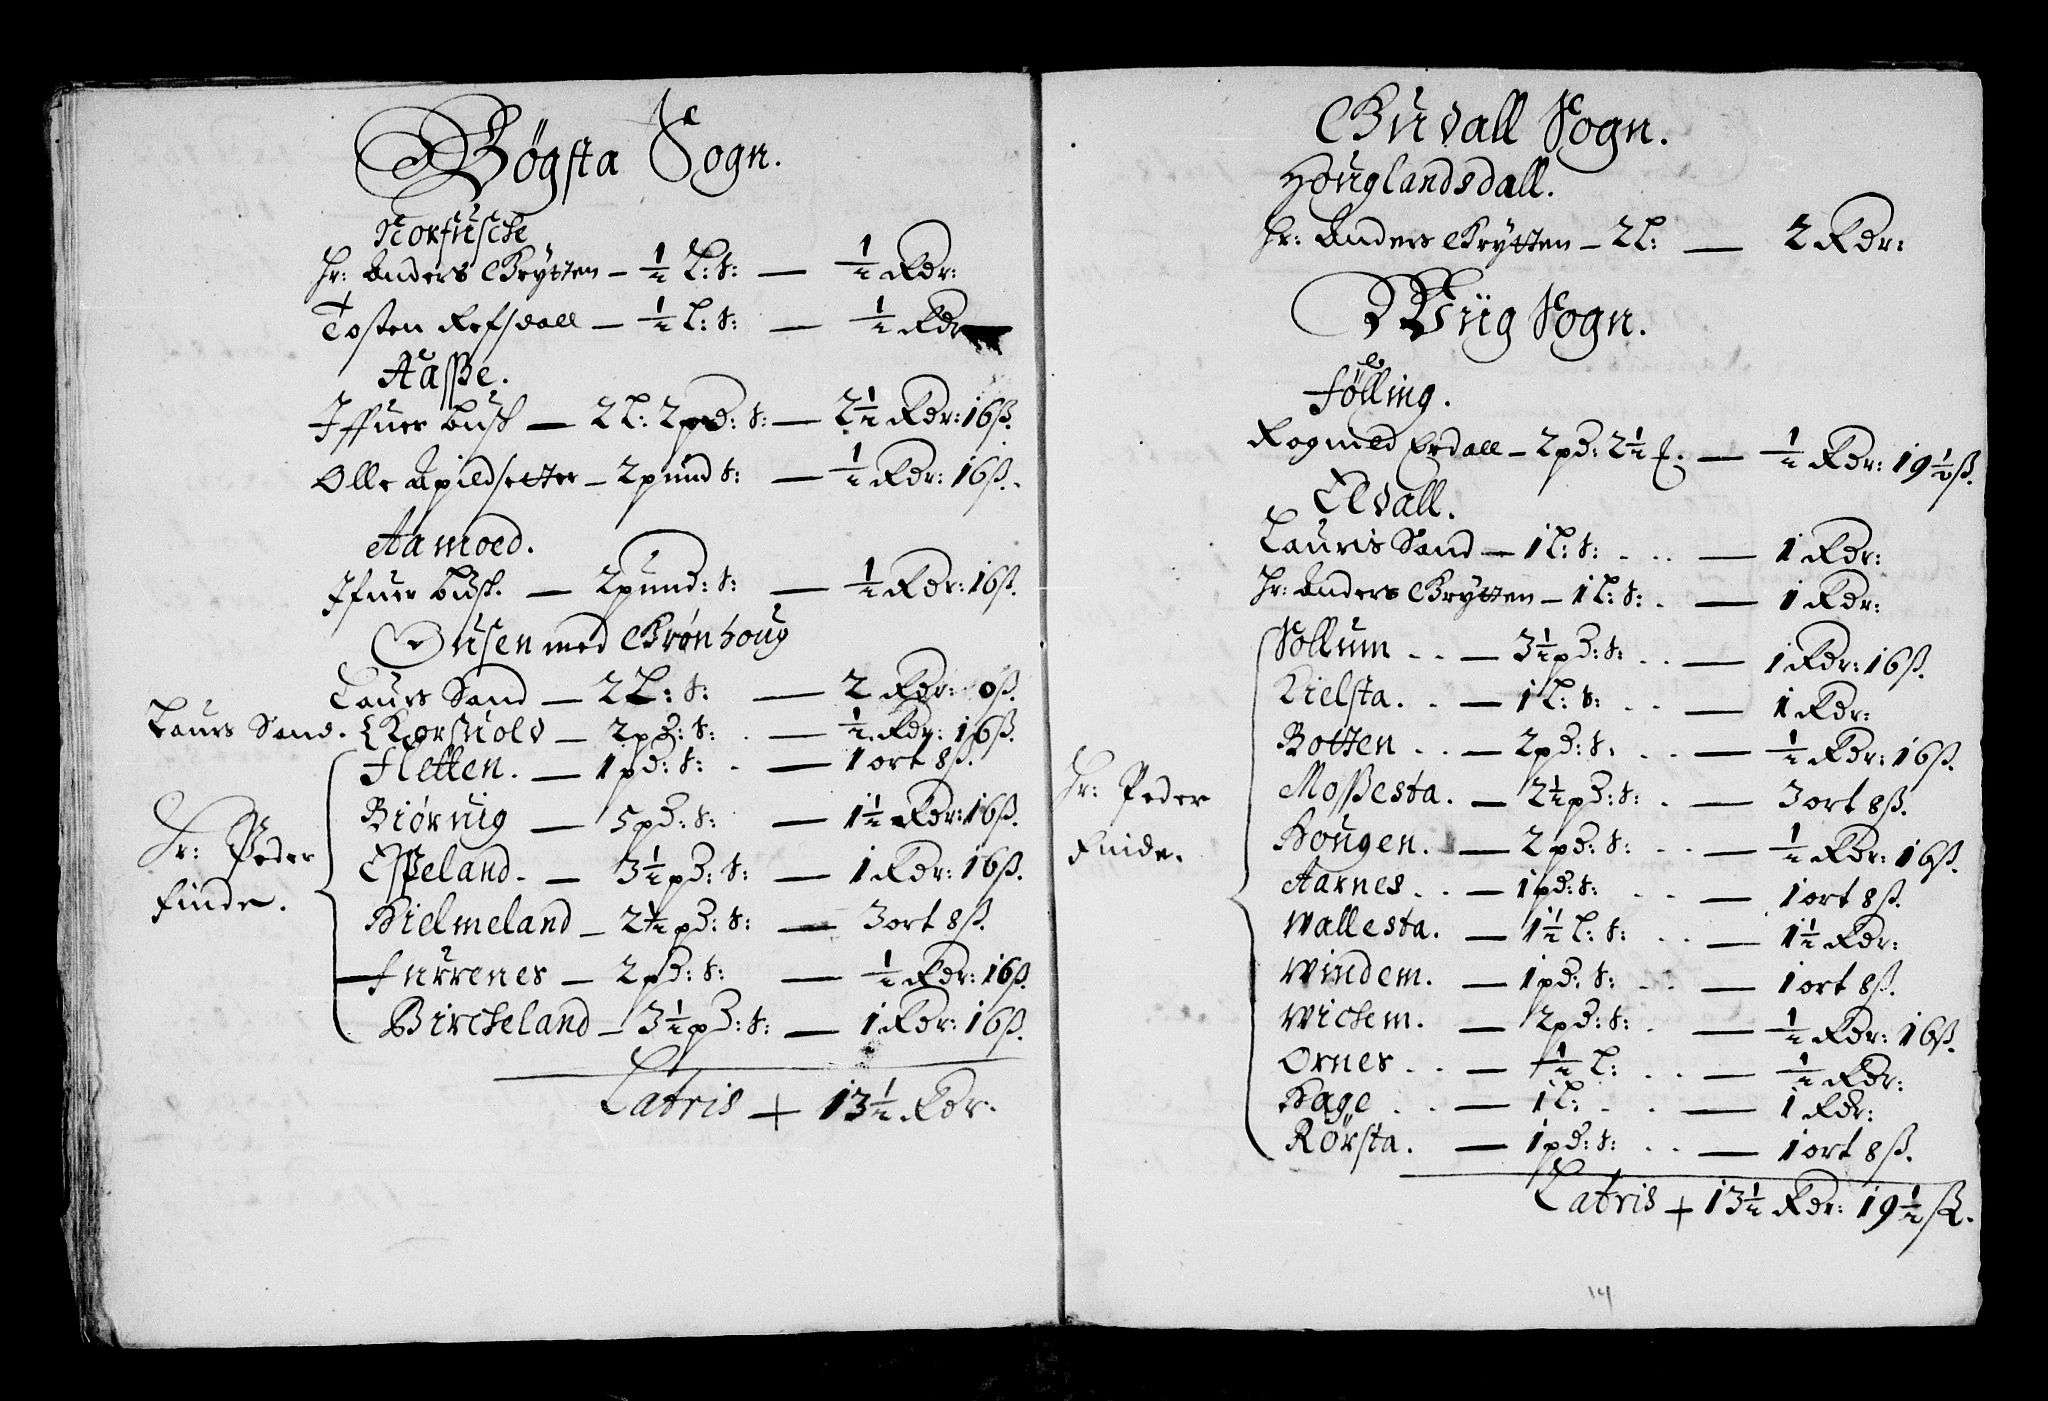 Bögsta Sogn.
Norfüsche
Hr: Anders Grytten – ½ L: S: — ½ Rdr:
Tosten Refsdall – ½ L: S: — ½ Rdr
Aasße.
Iffuer Busch — 2 L: 2 pd: S: — 2½ Rdr: 16 ß.
Olle Apildsetter – 2 pund S: — ½ Rdr: 16 ß.
Aamoed.
Ifuer Busch. — 2 pund: S: — ½ Rdr: 16 ß.
Ousen med Grønhoug
Laurs Sand — 2 L: S: — 2 Rdr: 0 ß.
Laurs Sand. { Korsuold – 2 pd: S: — ½ Rdr: 16 ß.
Fletten. — 1 pd: S: — 1 ort 8 ß.
Biørnüig — 5 pd: S: — 1½ Rdr: 16 ß.
Hr: Peder
Finde.
Espeland. — 3½ pd: S: — 1 Rdr: 16 ß.
Hielmeland – 2½ pd: S: — 3 ort 8 ß.
Furrenes – 2 pd: S: — ½ Rdr: 16 ß.
Bircheland – 3½ pd: S: — 1 Rdr: 16 ß.
Latris + 13½ Rdr.
Gudall Sogn.
Houglandsdall.
Hr: Anders Grytten – 2 L: — 2 Rdr:
Wüg Sogn.
Fölling.
Rogmeld Erdall – 2 pd: 2½ — ½ Rdr: 19½ ß.
Eldall.
Lauris Sand — 1 L: S: . . . — 1 Rdr:
Hr: Anders Grytten – 1 L: S: . — 1 Rdr:
Sollum . . — 3½ pd: S: . . — 1 Rdr: 16 ß.
Kielsta. . — 1 L: S: . . — 1 Rdr:
Botten . . — 2 pd: S: . . — ½ Rdr: 16 ß.
Moßesta. — 2½ pd: S: . — 3 ort 8 ß.
Hr: Peder
Finde.
Hougen. — 2 pd: S: . . — ½ Rdr: 16 ß.
Aarnes . . — 1 pd: S: . . — 1 ort 8 ß.
Wallesta. — 1½ L: S: . . — 1½ Rdr:
Windem. — 1 pd: S: . . — 1 ort 8 ß.
Wichem. — 2 pd: S: . — ½ Rdr: 16 ß.
Ornes . . — ½ L: . . — ½ Rdr:
Hage . . — 1 L: . . — 1 Rdr:
Rörsta. — 1 pd: S: . . — 1 ort 8 ß.
Latris + 13½ Rdr: 19½ ß.
14